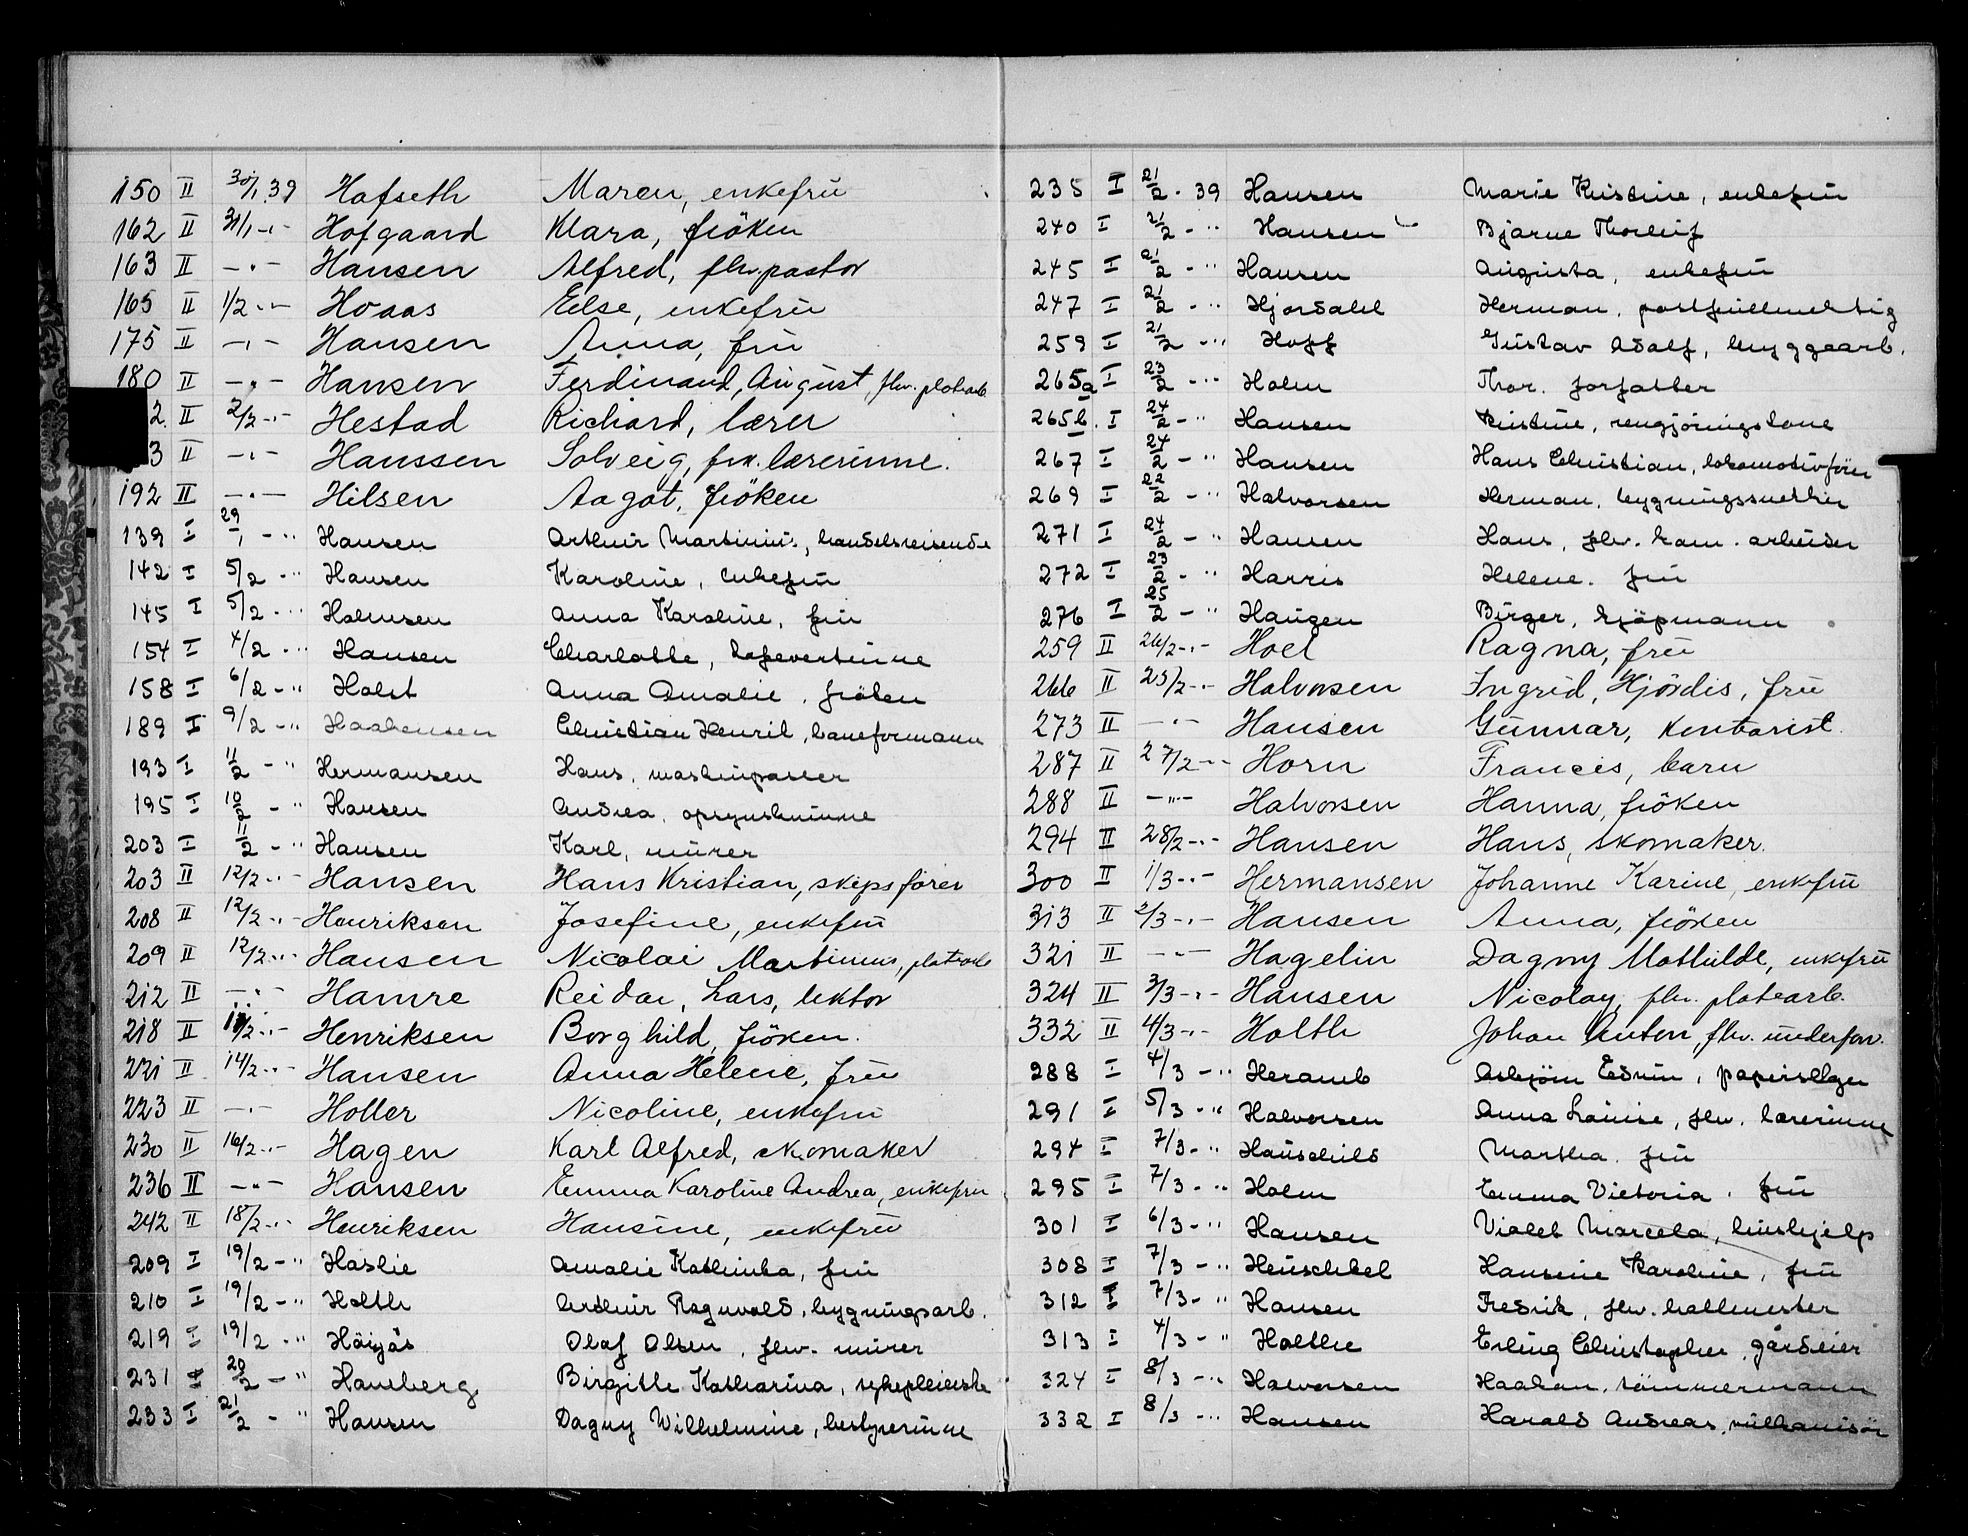 150 II 30/1 39 Hafseth Maren, enkefrü
162 II 31/1 -"- Hofgaard Klara, fröken
163 II -"- Hansen Alfred, fhv. pastor
165 II 1/2 -"- Hoaas Else, enkefrü
175 II -"- Hansen Anna, frü
180 II -"- Hansen Ferdinand, August, fhv. platearb.
2 II 2/2 -"- Hestad Richard, lærer
3 II -"- Hanssen Solveig, frk. lærerinne.
192 II -"- Hilsen Aagot, fröken
139 I 29/1 - " Hansen Arthur Martinius, handelsreisende
142 I 5/2 - " Hansen Karoline, enkefrü
145 I 5/2 - " Halmsen Anna Karoline, frü
154 I 4/2 - " Hansen Charlotte, kafevertinne
158 I 6/2 - " Holst Anna Amalie, fröken
189 I 9/2 - " Haakensen Christian Henrik, baneformann
193 I 11/2 - " Hermansen Hans, maskinpasser
195 I 10/2 - " Hansen Andrea, opsynskvinne
203 I 11/2 - " Hansen Karl, mürer
203 II 12/2 -"- Hansen Hans Kristian, skipsförer
208 II 12/2 -"- Henriksen Josefine, enkefrü
209 II 12/2 -"- Hansen Nicolai Martinius, platearb
212 II -"- Hamre Reidar, Lars, lektor
218 II /2 -"- Henriksen Borghild, fröken.
221 II 14/2 -"- Hansen Anna Helene, frü
223 II -"- Holter Nicoline, enkefrü
230 II 16/2 -"- Hagen Karl Alfred, skomaker
236 II -"- Hansen Emma Karoline Andrea, enkefru
242 II 18/2 -"- Henriksen Hansine, enkefrü
209 I 19/2 - " Haslie Amalie Kathinka, frü
210 I 19/2 - " Holth Arthur Ragnvald, bygningsarb.
219 I 19/2 - " Häigås Olaf Olsen, fhv. mürer
231 I 20/2 - " Hamberg Birgitte Katharina, sykepleierske
233 I 21/2 - " Hansen Dagny Wilhelmine, bestyrerinne
235 I 21/2 - 39 Hansen Marie Kristine, enkefrü
240 I 21/2 - " Hansen Bjarne Thorleif
245 I 21/2 - " Hansen Augusta, enkefrü
247 I 21/2 - " Hjordahl Herman, postfüllmektig
259 I 21/2 - " Hoff Güstav Adolf, bryggearb.
265a I 23/2 - " Holm Thor. forfatter
265b. I 24/2 - " Hansen Kristine, rengjöringskone
267 I 24/2 - " Hansen Hans Christian, lokomotivförer
269 I 22/2 - " Halvorsen Herman, bygningssnekker
271 I 24/2 - " Hansen Hans, fhv. kom. arbeider
272 I 23/2 - " Harris Helene. frü
276 I 25/2 - " Haugen Birger, kjöpmann
259 II 26/2 -"- Hoel Ragna, frü
266 II 25/2 -"- Halvorsen Ingrid, Hjördis, frü
273 II -"- Hansen Günnar, kontorist.
287 II 27/2 -"- Horn Francis, barn
288 II -"- Halvorsen Hanna, fröken
294 II 28/2 -"- Hansen Hans, skomaker.
300 II 1/3 -"- Hermansen Johanne Karine, enkefrü
313 II 2/3 -"- Hansen Anna, fröken
321 II -"- Hagelin Dagny Mathilde, enkefrü
324 II 3/3 -"- Hansen Nicolay, fhv. platearb.
332 II 4/3 -"- Holth Johan Anton, fhv. underfor.
288 I 4/3 - " Heramb Asbjörn Edvin, papirselger
291 I 5/3 - " Halvorsen Anna Louise, fhv. lærerinne
294 I 7/3 - " Hauschild Martha. frü
295 I 7/3 - " Holm Emma Victoria. frü
301 I 6/3 - " Hansen Violet Marcela, hüshjelp
308 I 7/3 - " Heuschkel Hansine Karoline, frü
312 I 7/3 - " Hansen Fredrik, fhv. hallmester
313 I 4/3 - " Holthe Erling Christopher, gårdeier
324 I 8/3 - " Halvorsen Haakon, tömmermann
332 I 8/3 - " Hansen Harald Andreas, vülkanisör